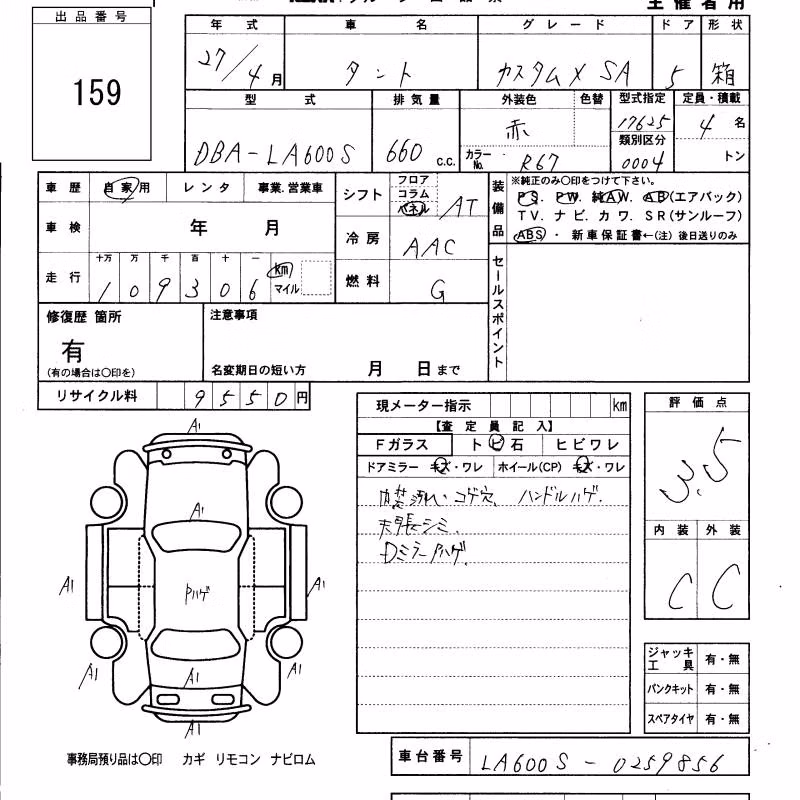 主催者用
出品番号
159
年式 車名 グレード ドア 形状
27/4月 タント カスタムX SA 5 箱
型式 排気量 外装色 色替 型式指定 定員・積載
DBA-LA600S 660 c.c. 赤 17625 4名
カラーNo. R67 類別区分 0004 トン
車歴 自家用 レンタ 事業.営業車
車検 年 月
走行 十万 万 千 百 十 一
109306 km マイル
シフト フロア コラム パネル AT
冷房 AAC
燃料 G
装備品 ※純正のみ○印をつけて下さい。
PS. PW. 純AW. AB(エアバック)
TV. ナビ. カワ. SR(サンルーフ)
ABS ・ 新車保証書←(注) 後日送りのみ
セールスポイント
修復歴 箇所
有
(有の場合は○印を)
注意事項
名変期日の短い方 月 日まで
リサイクル料 9550円
現メーター指示 km
【査定員記入】
Fガラス トビ石 ヒビワレ
ドアミラー キズ・ワレ ホイール(CP) キズ・ワレ
内装汚れ・コゲ穴、ハンドルハゲ.
天張シミ.
DミラーPハゲ.
評価点
3.5
内装 外装
C C
A1
A1
A1 Pハゲ A1
A1 A1 A1
A1
ジャッキ工具 有・無
パンクキット 有・無
スペアタイヤ 有・無
事務局預り品は○印 カギ リモコン ナビロム
車台番号 LA600S-0259856